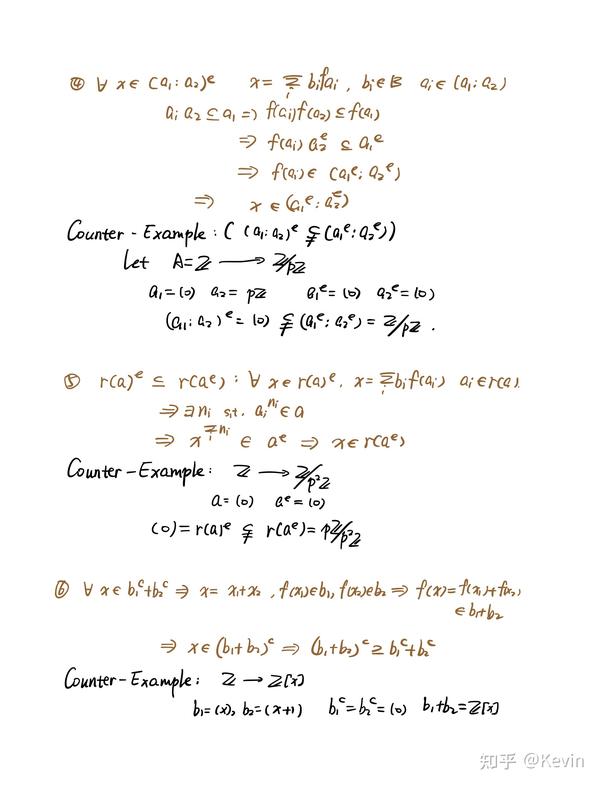 ④ ∀ x ∈ (a₁:a₂)ᵉ x = Σᵢ bᵢfaᵢ , bᵢ∈B aᵢ∈(a₁:a₂)
aᵢ a₂ ⊆ a₁ ⇒ f(aᵢ)f(a₂) ⊆ f(a₁)
⇒ f(aᵢ) a₂ᵉ ⊆ a₁ᵉ
⇒ f(aᵢ) ∈ (a₁ᵉ: a₂ᵉ)
⇒ x ∈ (a₁ᵉ: a₂ᵉ)
Counter-Example: ( (a₁:a₂)ᵉ ⊊ (a₁ᵉ:a₂ᵉ))
Let A=ℤ ⟶ ℤ/pℤ
a₁=(0) a₂= pℤ a₁ᵉ=(0) a₂ᵉ=(0)
(a₁: a₂)ᵉ=(0) ⊊ (a₁ᵉ: a₂ᵉ) = ℤ/pℤ .
⑤ r(a)ᵉ ⊆ r(aᵉ) : ∀ x∈ r(a)ᵉ, x= Σᵢ bᵢ f(aᵢ) aᵢ∈r(a).
⇒ ∃ nᵢ s.t. aᵢ^{nᵢ} ∈ a
⇒ x^{Σᵢ nᵢ} ∈ aᵉ ⇒ x∈r(aᵉ)
Counter-Example: ℤ ⟶ ℤ/p²ℤ
a=(0) aᵉ=(0)
(0)= r(a)ᵉ ⊊ r(aᵉ)= pℤ/p²ℤ
⑥ ∀ x∈ b₁ᶜ+b₂ᶜ ⇒ x= x₁+x₂ , f(x₁)∈b₁, f(x₂)∈b₂ ⇒ f(x)=f(x₁)+f(x₂)
∈ b₁+b₂
⇒ x∈(b₁+b₂)ᶜ ⇒ (b₁+b₂)ᶜ ⊇ b₁ᶜ+b₂ᶜ
Counter-Example: ℤ → ℤ[x]
b₁=(x), b₂=(x+1) b₁ᶜ=b₂ᶜ=(0) b₁+b₂=ℤ[x]
知乎 @Kevin